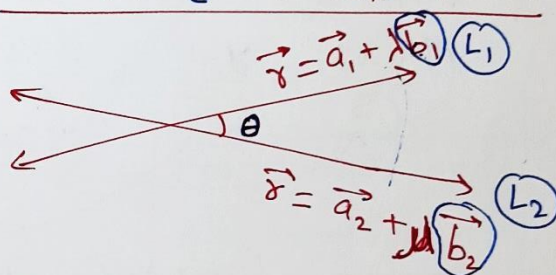 r⃗ = a⃗₁ + λb⃗₁ L₁
θ
r⃗ = a⃗₂ + μb⃗₂ L₂